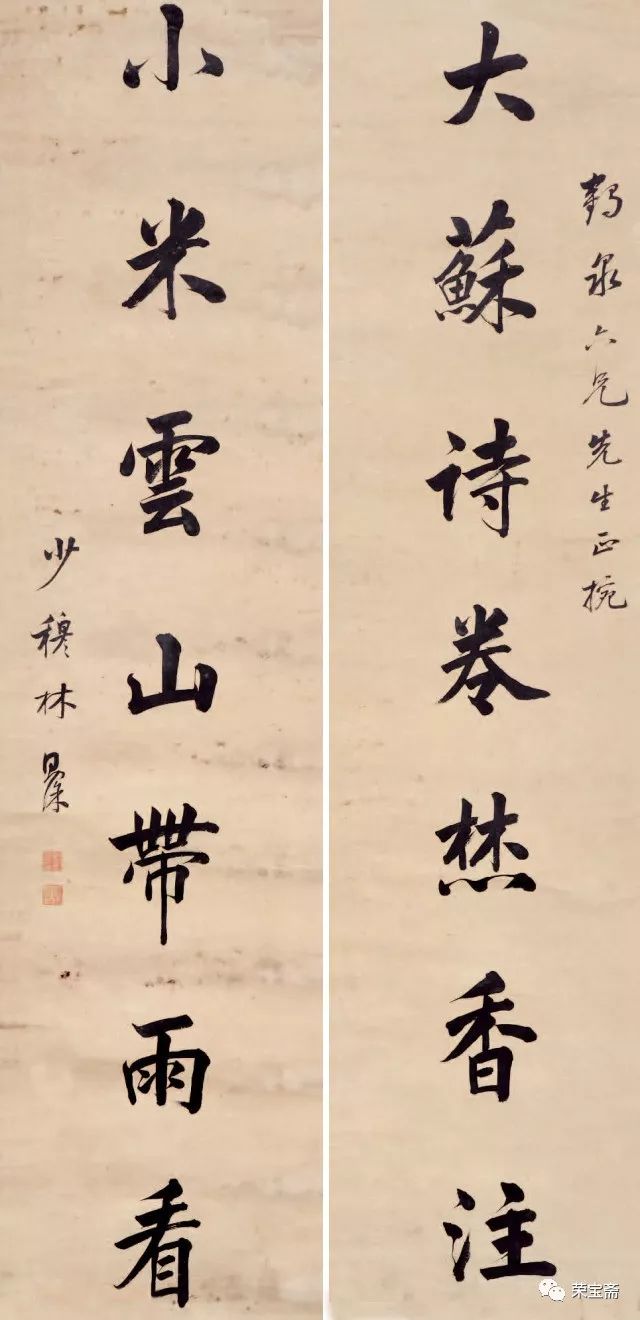 鶴泉六兄先生正捥
大蘇詩卷焚香注
小米雲山帶雨看
少穆林則徐
荣宝斋